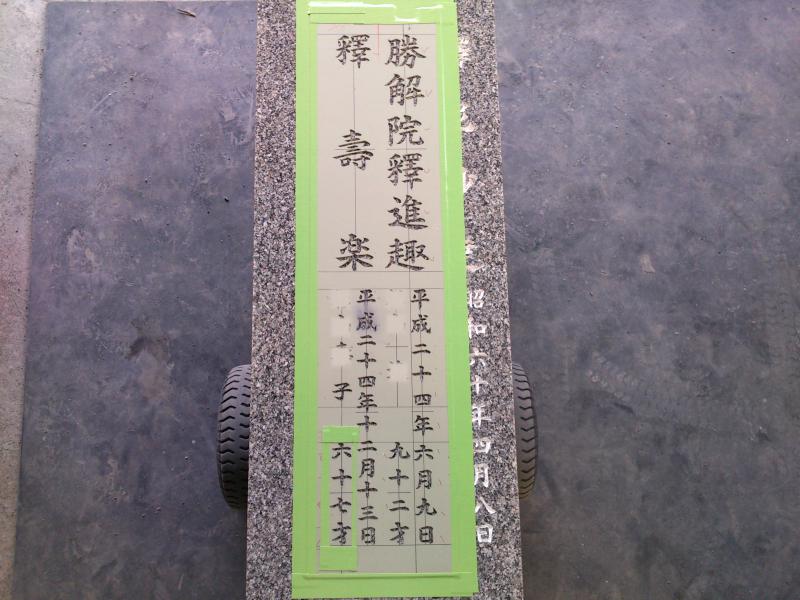 昭和六十年四月八日
勝解院釋進趣
平成二十四年六月九日
九十二才
釋壽楽
平成二十四年十二月十三日
子
六十七才